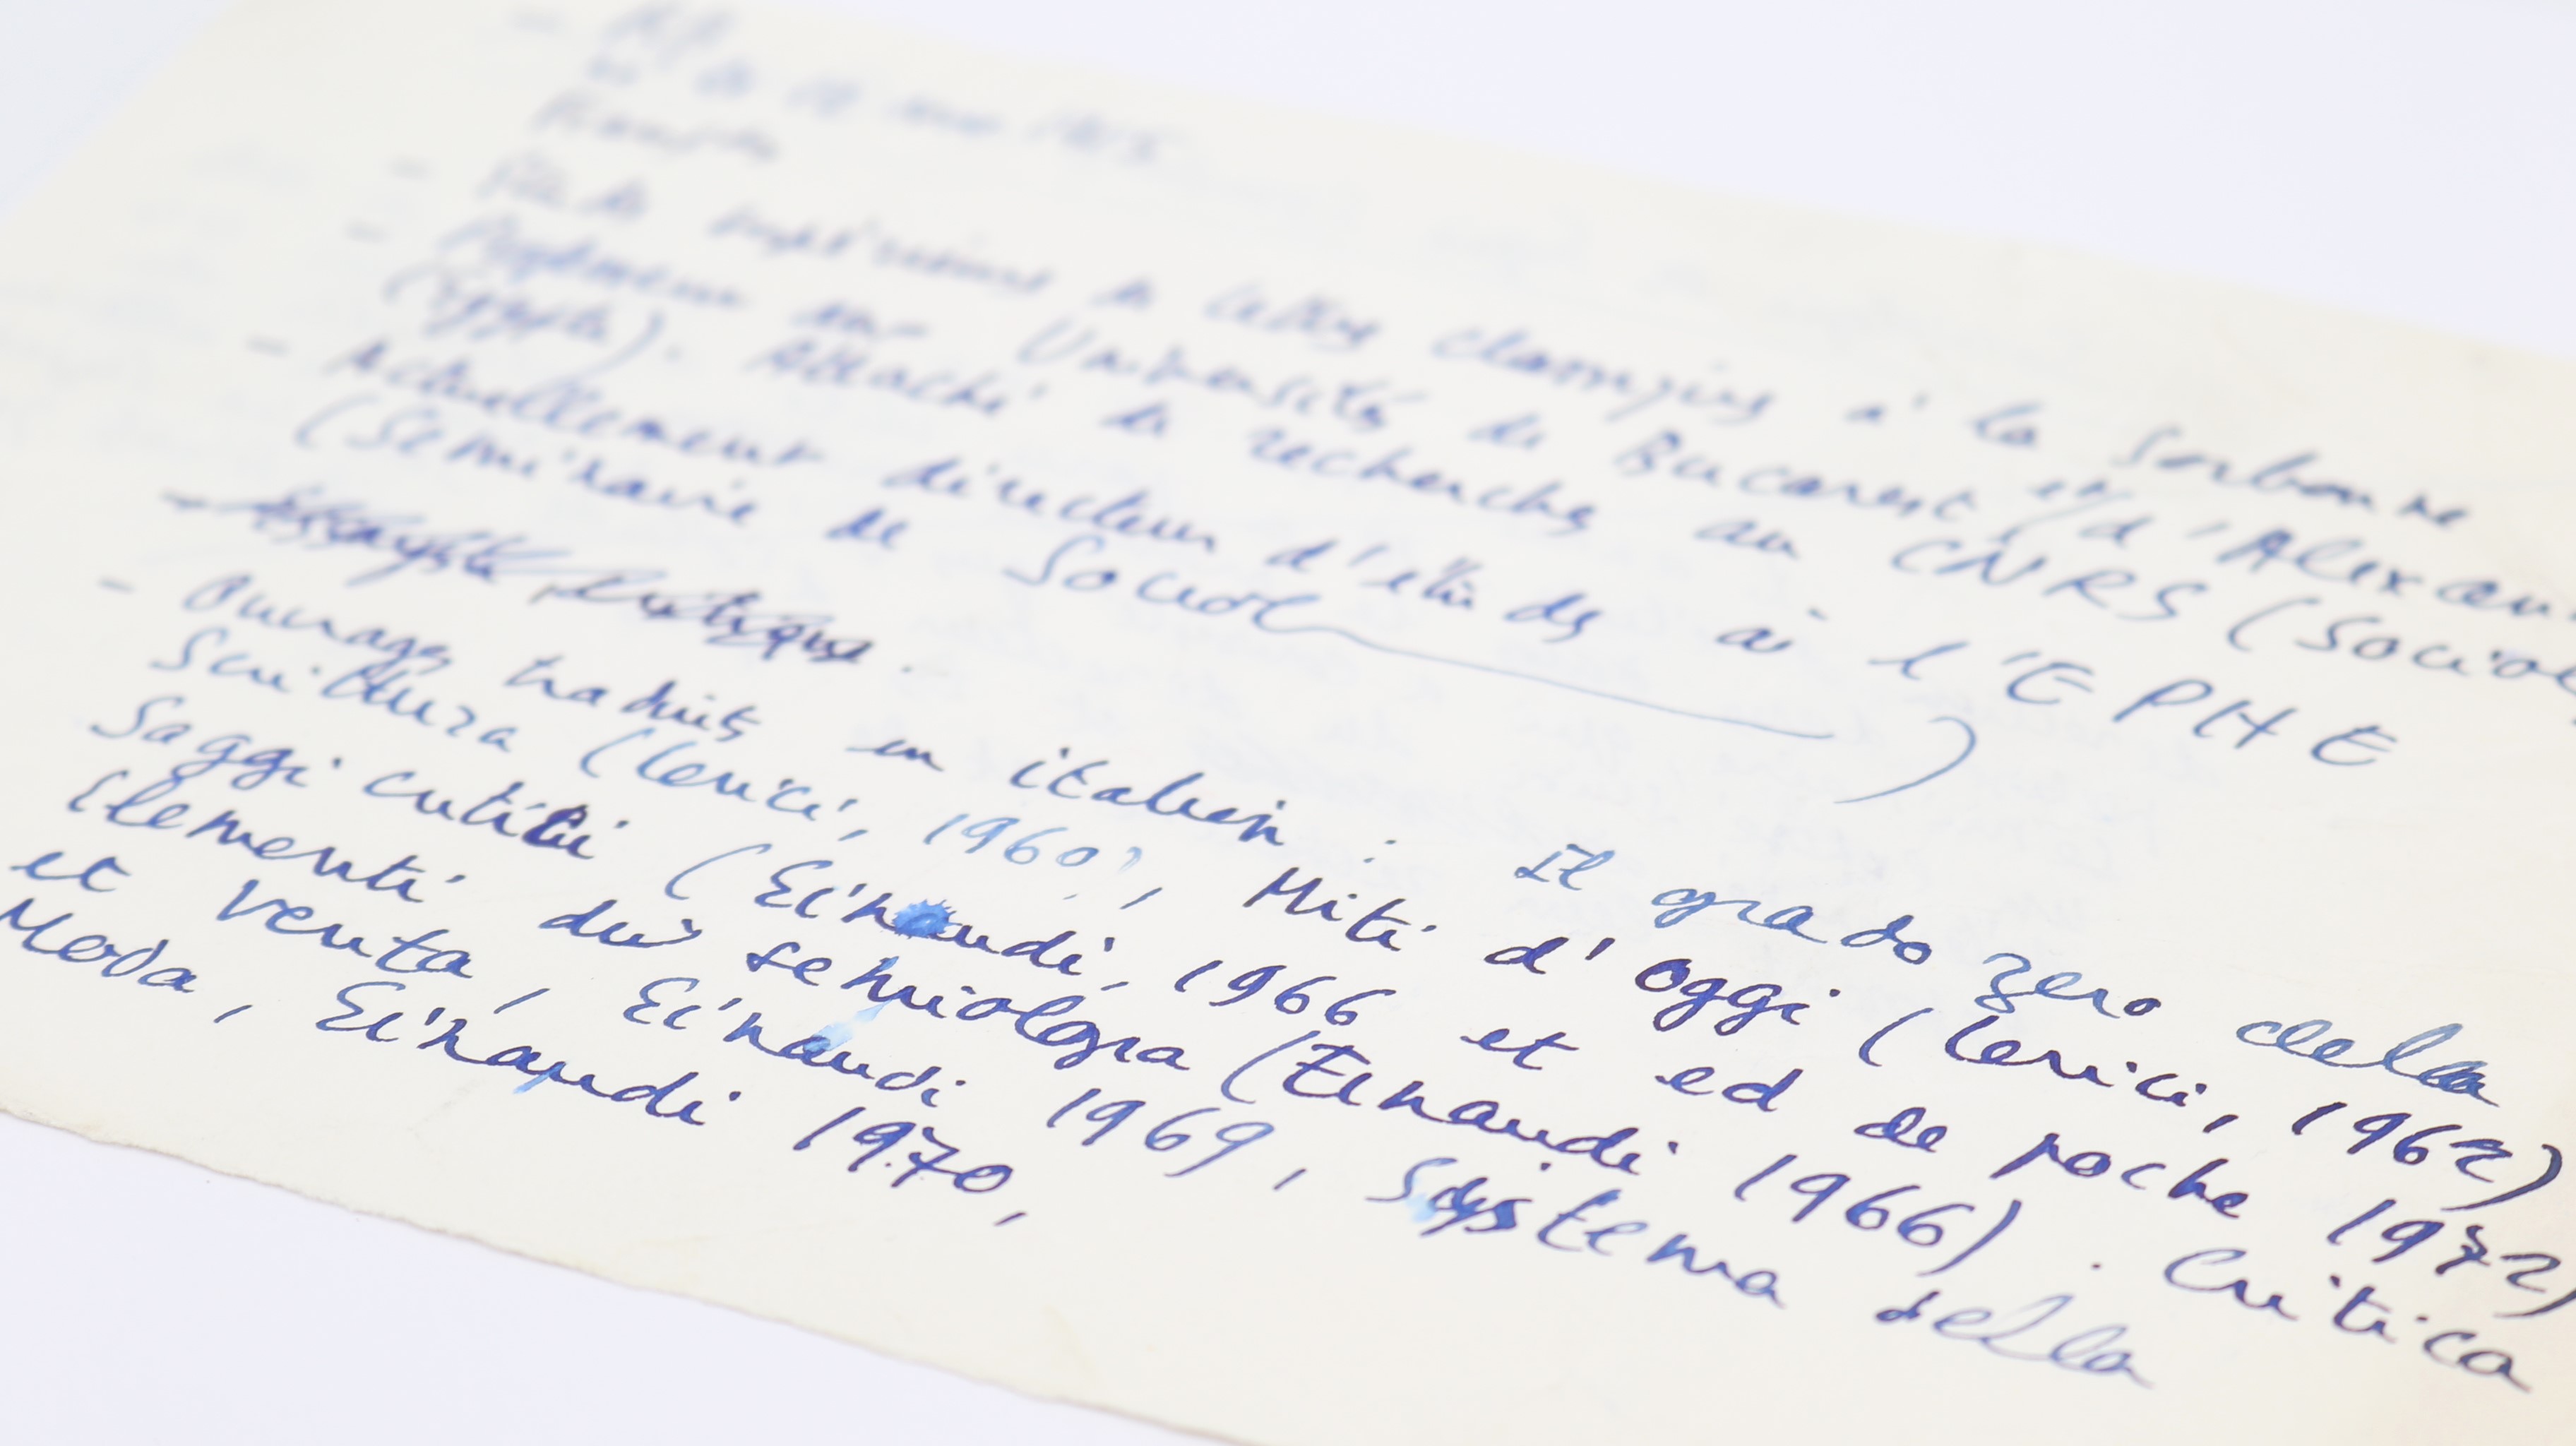 - Etudes supérieures de lettres classiques à la Sorbonne
- Professeur aux Universités de Bucarest et d'Alexan-
(Egypte). Attaché de recherches au CNRS (Sociol
- Actuellement directeur d'études à l'EPHE
(Séminaire de Sociol )
- Ouvrages traduits en italien : Il grado zero della
Scrittura (Lerici, 1960), Miti d'oggi (Lerici, 1962)
Saggi critici (Einaudi, 1966 et ed de poche 1972)
Elementi di semiologia (Einaudi 1966). Critica
et verita, Einaudi 1969, Systema della
Moda, Einaudi 1970,